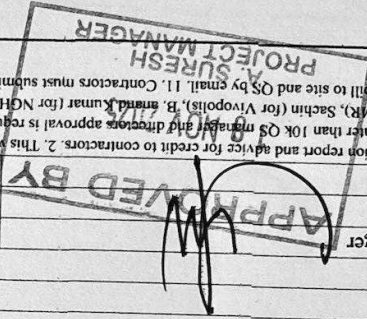 ger
APPROVED BY
tion report and advice for credit to contractors. 2. This
ter than 10k QS manager and directors approval is requ
MR), Sachin (for Vivopolis), B. Anand Kumar (for NGH
NOV
bill to site and QS by email. 11. Contractors must submi
A. SURESH
PROJECT MANAGER